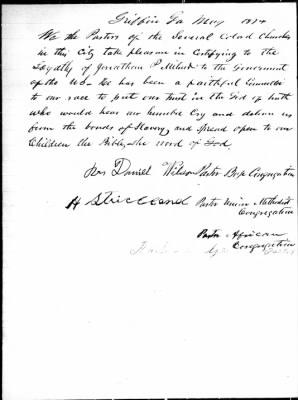 Griffin Ga May 1874
We the Pastors of the Several Colord Churches
in this City take pleasure in Certifying to the
Loyalty of Jonathan P Milner to the Government
of the US - He has been a faithful Counseler
to our race to put our trust in the God of truth
who would hear our humble Cry and deliver us
from the bonds of Slavery and Spread open to our
Children the Bible, the word of God.
Daniel Wilson Pastor Congregation
H Strickland Pastor Union Methodist
Congregation
Pastor African
Congregation